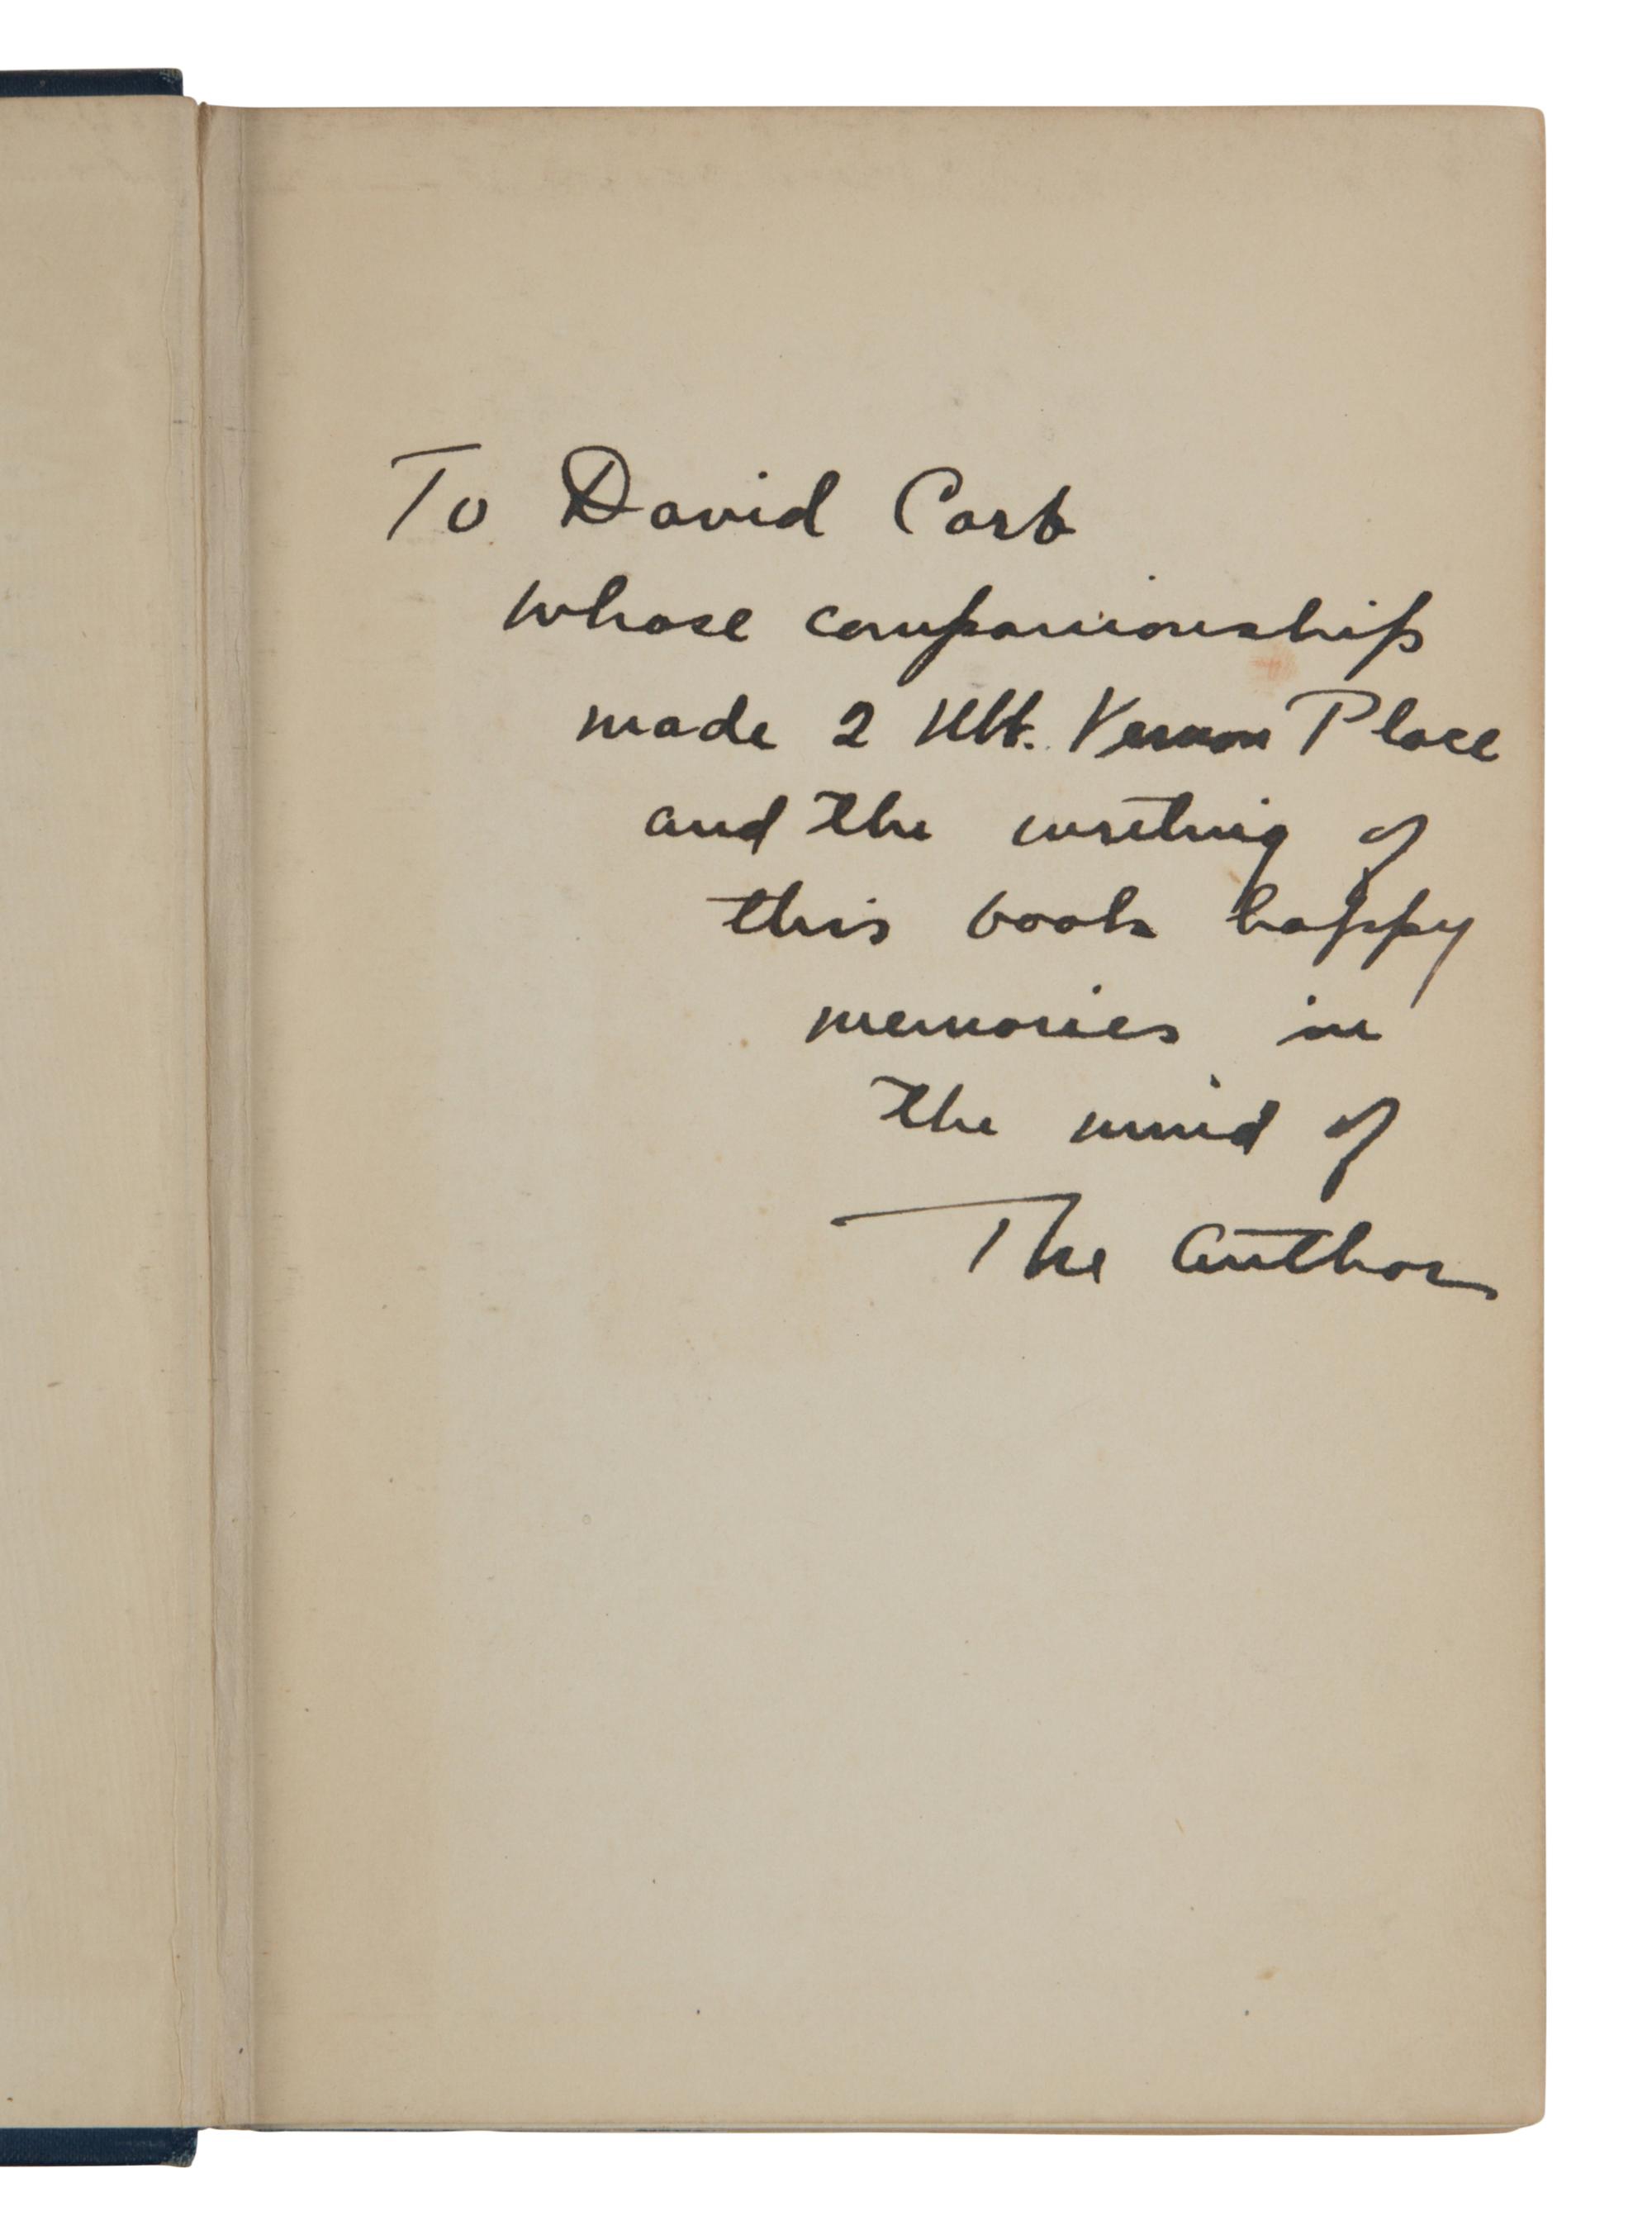 To David Carb
whose companionship
made 2 Mt. Vernon Place
and the writing of
this book happy
memories in
the mind of
The Author